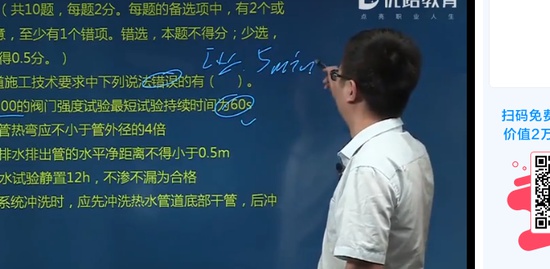 优路教育
点亮职业人生
（共10题，每题2分。每题的备选项中，有2个或
意，至少有1个错项。错选，本题不得分；少选，
得0.5分。）
道施工技术要求中下列说法错误的有（ ）。
00的阀门强度试验最短试验持续时间为60s
5min
管热弯应不小于管外径的4倍
排水排出管的水平净距离不得小于0.5m
水试验静置12h，不渗不漏为合格
系统冲洗时，应先冲洗热水管道底部干管，后冲
扫码免费
价值2万